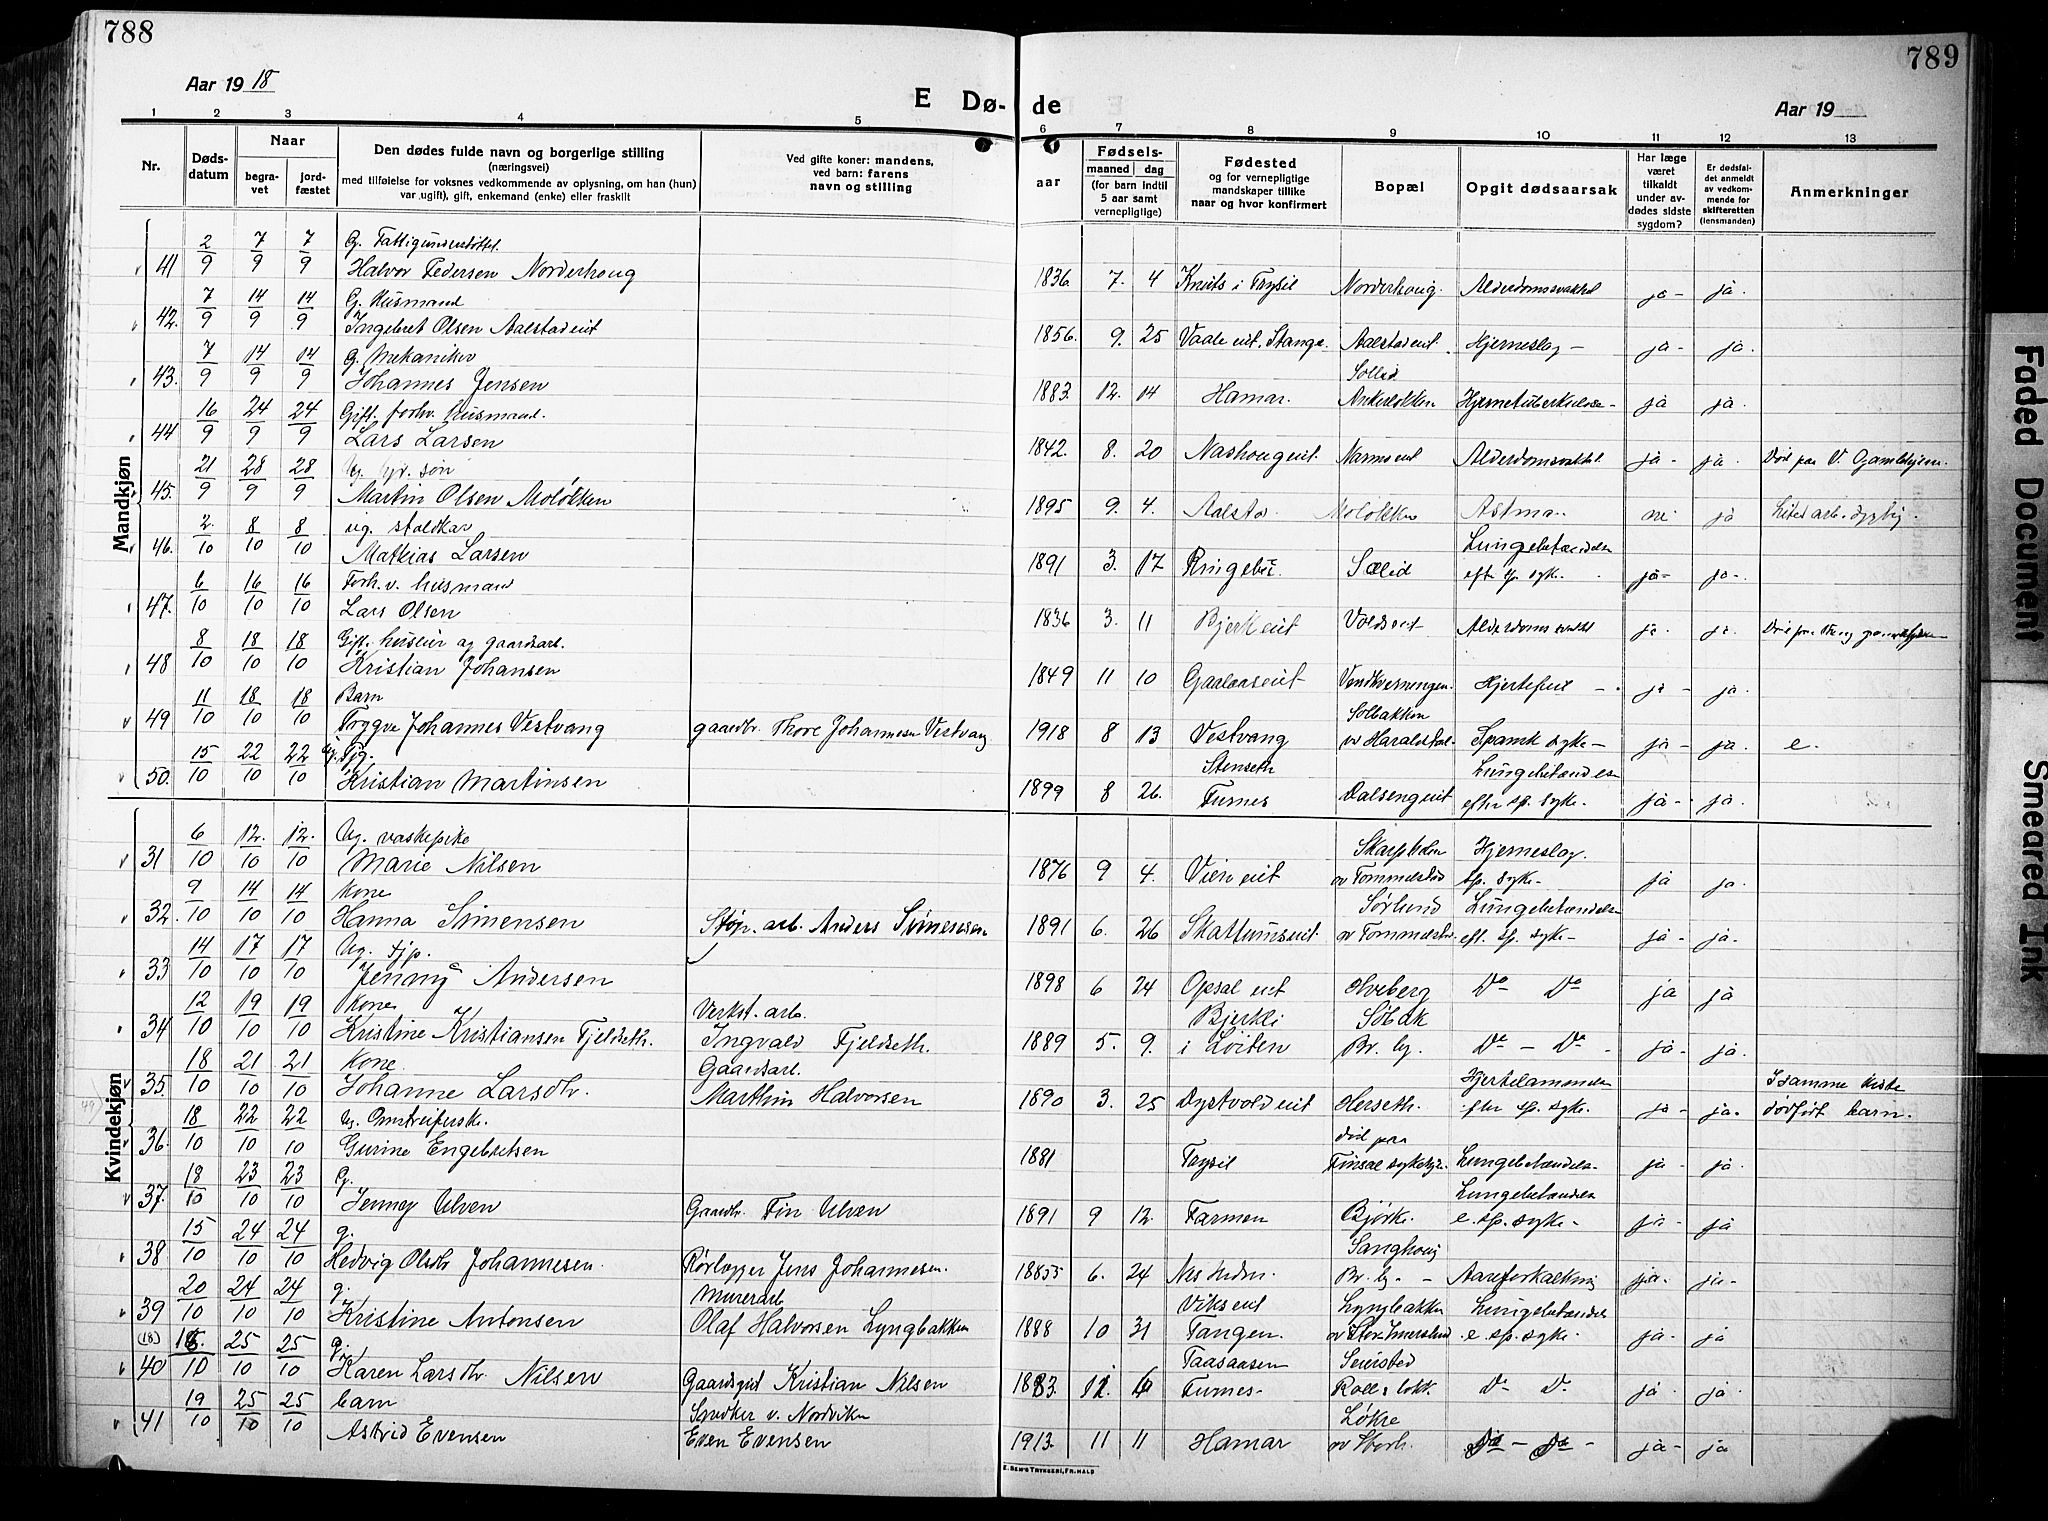 788
789
Aar 19 18
E Dø-
de
Aar 19
1 2 3 4 5 6 7 8 9 10 11 12 13
Nr.
Døds-
datum
Naar
begra-
vet
jord-
fæstet
Den dødes fulde navn og borgerlige stilling
(næringsvei)
med tilføielse for voksnes vedkommende av oplysning, om han (hun)
var ugift), gift, enkemand (enke) eller fraskilt
Ved gifte koner: mandens,
ved barn: farens
navn og stilling
Fødsels-
aar
maaned dag
(for barn indtil
5 aar samt
vernepligtige)
Fødested
og for vernepligtige
mandskaper tillike
naar og hvor konfirmert
Bopæl
Opgit dødsaarsak
Har læge
været
tilkaldt
under av-
dødes sidste
sygdom?
Er dødsfal-
det anmeldt
av vedkom-
mende for
skifteretten
(lensmanden)
Anmerkninger
Mandkjøn
41 2/9 7/9 7/9 G. Fattigunderstøttet
Halvor Pedersen Norderhoug 1836 7 4 Knuts i Trysil Norderhoug Alderdomssvakhet ja ja
42. 7/9 14/9 14/9 G. Husmand
Ingebret Olsen Aalstadeiet 1856 9. 25 Vaaleeiet. Stange Aalstadeiet Hjerneslag ja ja
43. 7/9 14/9 14/9 G. Mekaniker
Sollid
Johannes Jensen 1883 12. 14 Hamar Ankerløkken Hjernetuberkulose ja ja
44 16/9 24/9 24/9 Gift. forhv. husmand.
Lars Larsen 1842. 8. 20 Nashougeiet. Narmoeiet Alderdomssvakhet ja ja Død paa V. Gamlehjem
45. 21/9 28/9 28/9 Ug. gr. søn
Martin Olsen Moløkken 1895 9. 4. Aalstad Moløkken Astma nei ja Litet arb. dygtig.
46. 2/10 8/10 8/10 ug. staldkar
Lungebetændelse
Mathias Larsen 1891 3. 17 Ringebu. Sælid efter sp. syke. ja ja
47. 6/10 16/10 16/10 Forh. v. husmand
Lars Olsen 1836 3. 11 Bjerkeeiet Voldseiet Alderdomssvakhet ja ja
48 8/10 18/10 18/10 Gift. husleier og gaardsarb.
Kristian Johansen 1849 11 10 Gaalaaseiet Vendkverningen Hjertefeil ja ja
49 11/10 18/10 18/10 Barn
Solbakken
Trygve Johannes Vestvang gaardbr. Thore Johannesen Vestvang 1918 8 13 Vestvang av Haralstad Spansk syke ja ja e.
50. 15/10 22/10 22/10 Ug. Tjg.
Stenseth Lungebetændelse
Kristian Martinsen 1899 8 26. Furnes Dalsengeiet efter sp. syke. ja ja
Kvindekjøn
31 6/10 12./10 12./10 Ug. vaskepike
Hjerneslag.
Marie Nilsen 1876 9 4. Vieneiet av Tommelstad sp. syke ja ja
32. 9/10 14/10 14/10 Kone
Sørlund Lungebetændelse
Hanna Simensen Støp. arb. Anders Simensen 1891 6. 26 Skattumseiet. av Tommelstad eft. sp. syke ja ja
33 14/10 17/10 17/10 Ug. tjp.
Jenny Andersen 1898 6 24 Opsal eiet Hveberg Do Do ja ja
34 12/10 19/10 19/10 Kone
Verkst. arb.
Bjerke Søbak
Kristine Kristiansen Fjeldseth. Ingvald Fjeldseth. 1889 5. 9. i Løiten Br. by. Do Do ja ja
35. 18/10 21/10 21/10 Kone
Gaardsarb.
Hjertelammelse I samme kiste
Johanne Larsdtr. Marthin Halvorsen 1890 3. 25 Dystvoldeiet Herseth. efter sp. syke. ja ja dødfødt barn.
36. 18/10 22/10 22/10 Ug. Omstreiferske.
død paa
Gurine Engebretsen 1881 Trysil Finsal sykehj. Lungebetændelse ja ja
37. 18/10 23/10 23/10 G.
Lungebetændelse
Jenney Ulven Gaardbr. Fin Ulven 1891 9 12. Farmen Bjørke. e. sp. syke ja ja
38 15/10 24/10 24/10 g.
Sanghoug
Hedvig Olsdtr Johannesen. Rørlægger Jens Johannesen. 1855 6. 24 Nes Hedm. Br. by. Aareforkalkning ja ja
39 20/10 24/10 24/10 g.
Murerarb
Vikseiet Lyngbakken Lungebetændelse
Kristine Antonsen Olaf Halvorsen Lyngbakken 1888 10 31 Tangen. e. sp. syke. ja ja
40 (18) 25/10 25/10 g.
Taasaasen Seiersted
Karen Larsdtr. Nilsen Gaardsgut Kristian Nilsen 1883. Furnes Do Do ja ja
41 19/10 25/10 25/10 barn
Snedker v. Nordviken
Løkre
Astrid Evensen Even Evensen 1913. 11 11 Hamar av Storh. Do Do ja ja
E. SEM'S TRYKKERI, FR.HALD
Faded Document
Smeared Ink